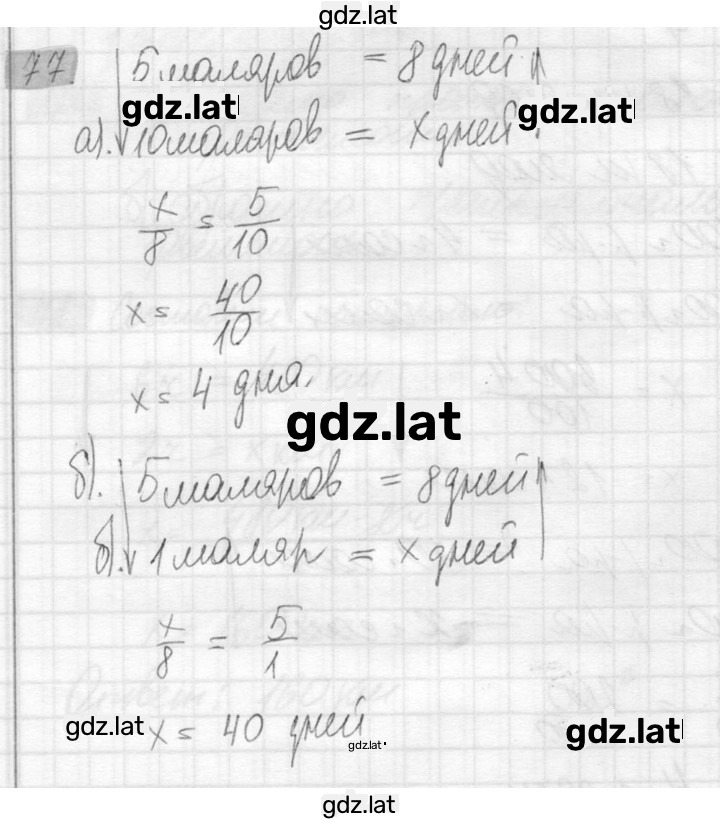 gdz.lat
77. 5 маляров = 8 дней
gdz.lat gdz.lat
а). 10 маляров = x дней.
x/8 = 5/10
x = 40/10
x = 4 дня.
gdz.lat
б). 5 маляров = 8 дней
б). 1 маляр = x дней
x/8 = 5/1
gdz.lat x = 40 дней gdz.lat gdz.lat
gdz.lat